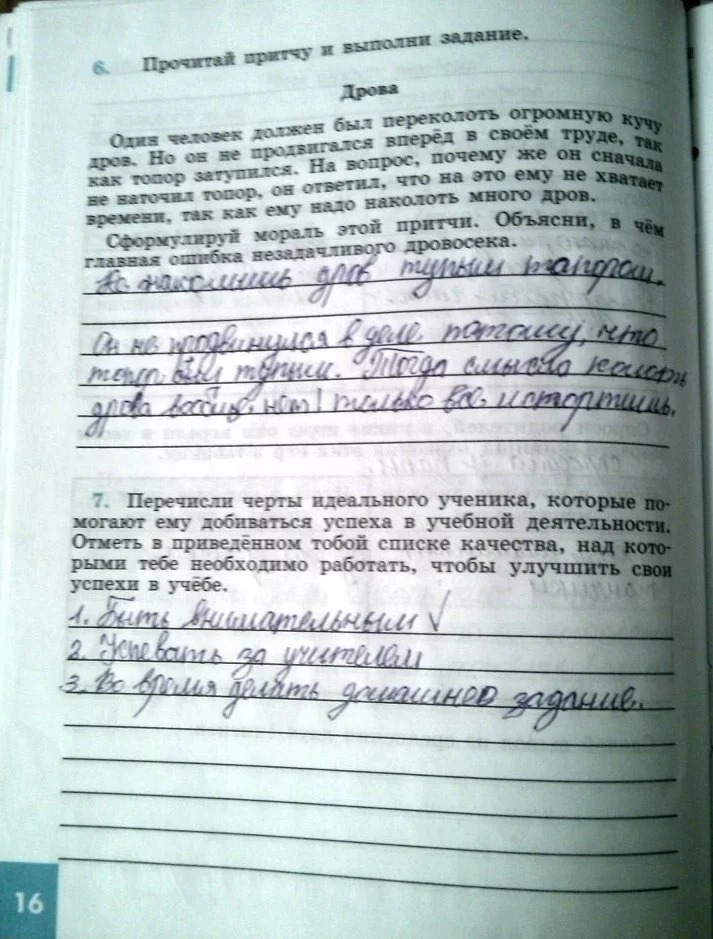 6. Прочитай притчу и выполни задание.
Дрова
Один человек должен был переколоть огромную кучу
дров. Но он не продвигался вперёд в своём труде, так
как топор затупился. На вопрос, почему же он сначала
не наточил топор, он ответил, что на это ему не хватает
времени, так как ему надо наколоть много дров.
Сформулируй мораль этой притчи. Объясни, в чём
главная ошибка незадачливого дровосека.
Не наколишь дров тупым тапором.
Он не продвинулся в деле потому, что
топор был тупым. Тогда смысла колоть
дрова вообще нет! только все испортишь.
7. Перечисли черты идеального ученика, которые по-
могают ему добиваться успеха в учебной деятельности.
Отметь в приведённом тобой списке качества, над кото-
рыми тебе необходимо работать, чтобы улучшить свои
успехи в учёбе.
1. Быть внимательным √
2. Успевать за учителем
3. Во время делать домашнео задание.
16